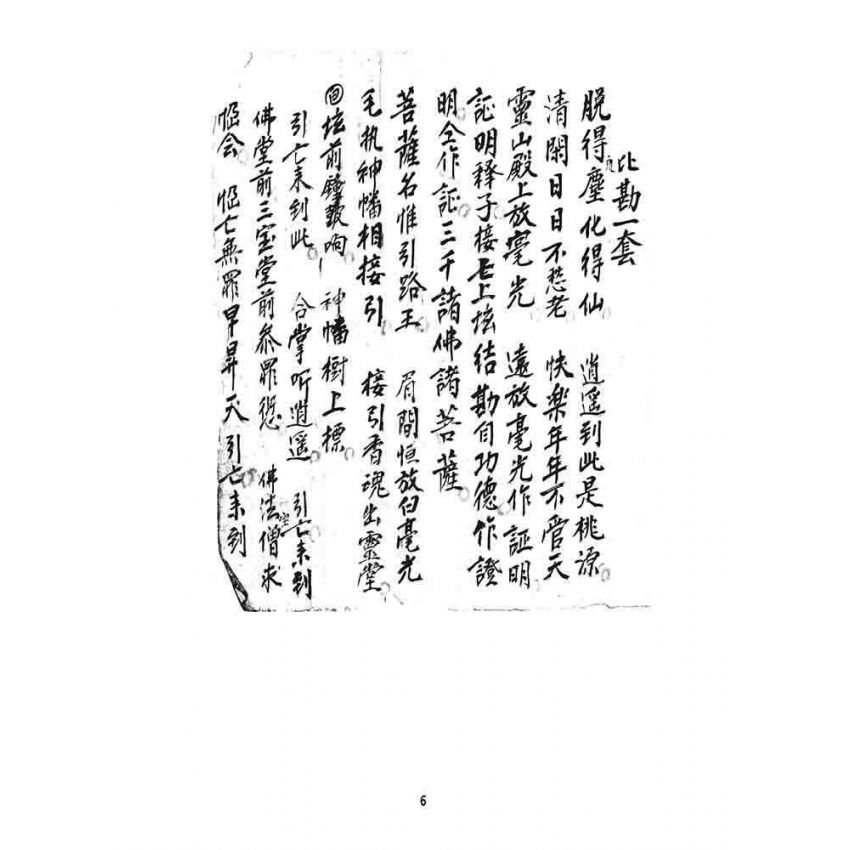 比勘一套
脱得塵化得仙 逍遥到此是桃源
清閑日日不愁老 快楽年年不管天
靈山殿上放毫光 遠放毫光作証明
証明釋子接亡上坛结勘自功德作證
明仝作証三千諸佛諸菩薩
菩薩名惟引路王 眉間恒放白毫光
毛执神幡相接引 接引香魂出靈堂
坛前鐘鼓响 神幡樹上標
引亡来到此 合掌听逍遥 引亡来到
佛堂前三宝堂前叅罪愆 佛法僧求
亡無罪早昇天引亡来到
6